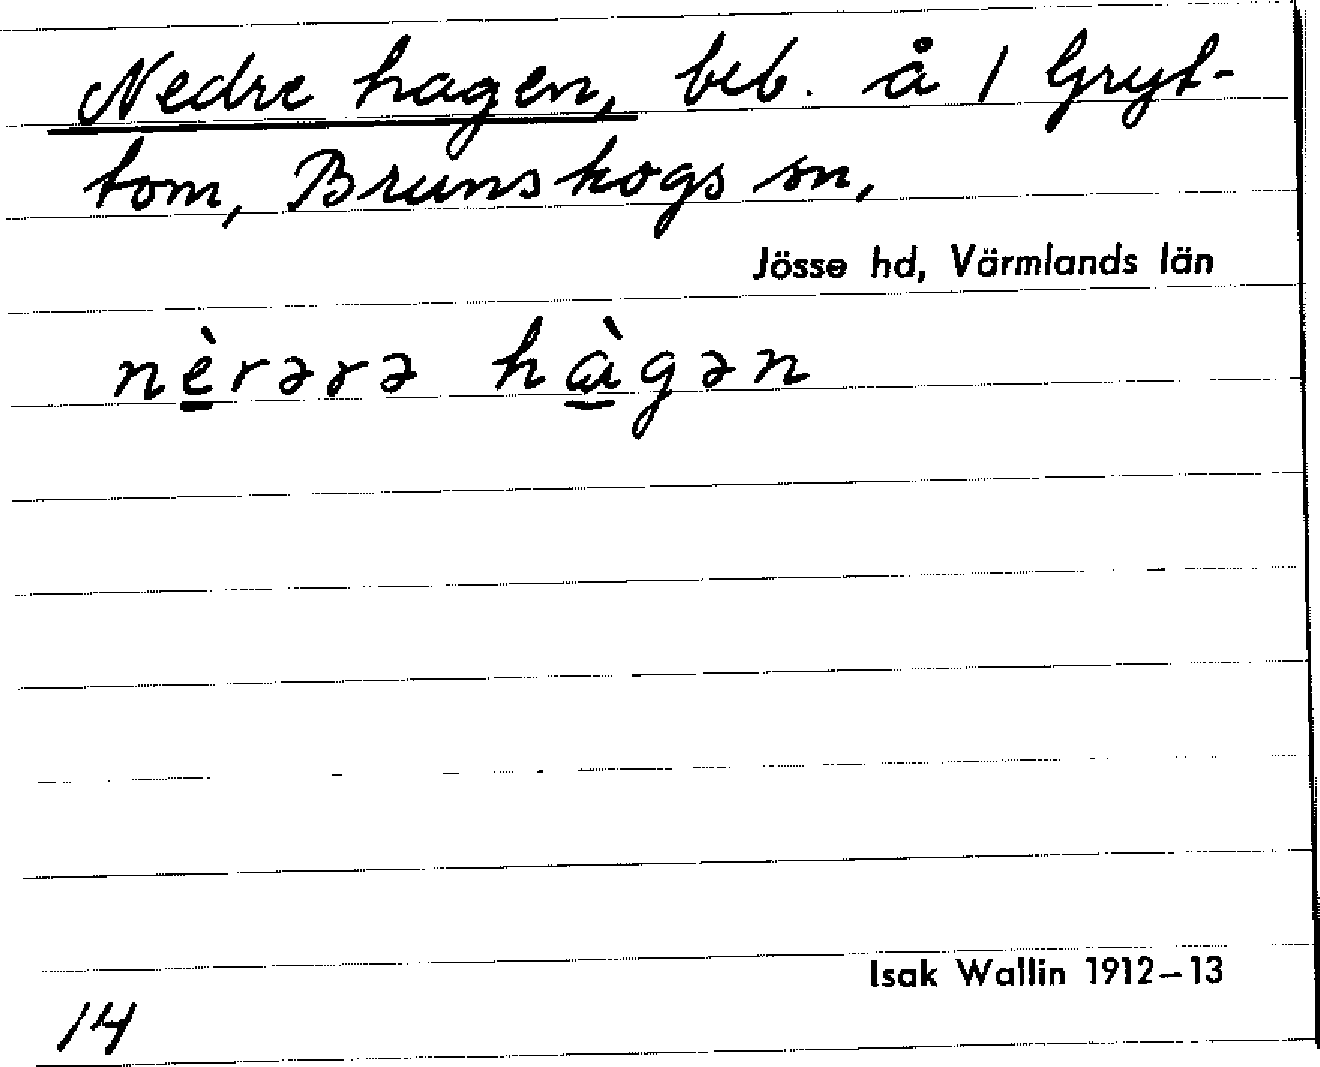 Nedre hagen, beb. å 1 Gryt-
tom, Brunskogs sn,
Jösse hd, Värmlands län
nèrərə hàgən
Isak Wallin 1912–13
14